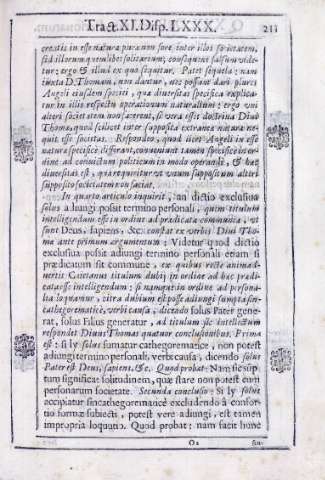 Tract.XI.Disp.LXXX. 211
creatis in esse naturæ puræ non fore inter illos societatem,
sed illorum quemlibet solitarium; consequens falsum vide-
tur: ergo & illud ex quo sequitur. Patet sequela: nam
iuxta D. Thomam, non dantur, nec possunt dari plures
Angeli eiusdem speciei, qua diversitas specifica explica-
tur in illis respectu operationum naturalium: ergo uni
alteri societatem non facerent, si vera esset doctrina Divi
Thomæ, quod scilicet inter supposita extranea naturæ ne-
quit esse societas. Respondeo, quod licet Angeli in esse
naturæ specificè differant, conveniunt tamen specificè in or-
dine ad convictum politicum in modo operandi, & hæc
diversitas est, quæ requiritur ut unum suppositum alteri
supposito societatem non faciat.
In quarto articulo inquirit, an dictio exclusiva
solus adiungi possit termino personali, quem titulum
intelligendum esse in ordine ad prædicata communia, ut
sunt Deus, sapiens, &c. constat ex verbis Divi Tho-
mæ ante primum argumentum: Videtur quod dictio
exclusiva possit adiungi termino personali etiam si
prædicatum sit commune: ex quibus recte animad-
vertit Caietanus titulum dubij in ordine ad hæc prædi-
cata esse intelligendum: si namque in ordine ad persona-
lia loquamur, citra dubium est posse adiungi sumpta sin-
cathegorematicè, verbi causa, dicendo solus Pater gene-
rat, solus Filius generatur, ad titulum sic intellectum
respondet Divus Thomas quatuor conclusionibus. Prima
est: si ly solus sumatur cathegorematicè, non potest
adiungi termino personali, verbi causa, dicendo solus
Pater est Deus, sapiens, &c. Quod probat: Nam sic sup-
tum significat solitudinem, quæ stare non potest cum
personarum societate. Secunda conclusio: Si ly solus
accipiatur sincathegorematicè excludendo à consor-
tio formæ subiecti, potest verè adiungi, est tamen
impropria loquutio. Quod probat: nam facit hunc
Oo